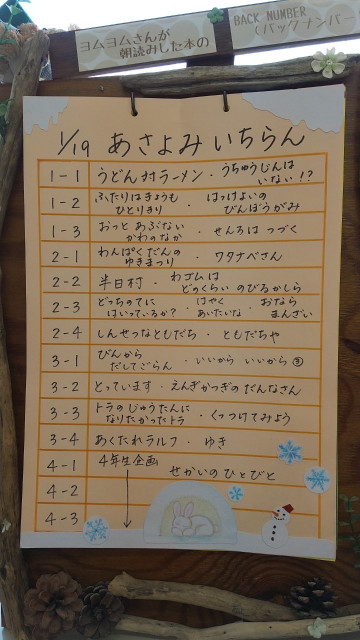 ヨムヨムさんが
朝読みした本の
BACK NUMBER
(バックナンバー
1/19 あさよみいちらん
1-1 うどん対ラーメン・うちゅうじんは
いない!?
1-2 ふたりはきょうも
ひとりきり ・ はっけよいの
びんぼうがみ
1-3 おっとあぶない
かわのなか ・ せんろはつづく
2-1 わんぱくだんの
ゆきまつり ・ ワタナベさん
2-2 半日村 ・ わゴムは
どのくらいのびるかしら
2-3 どっちのてに
はいっているか? ・ はやく
あいたいな ・ おなら
まんざい
2-4 しんせつなともだち ・ ともだちや
3-1 びんから
だしてごらん ・ いいからいいから③
3-2 とっています・えんぎかつぎのだんなさん
3-3 トラのじゅうたんに
なりたかったトラ ・ くっつけてみよう
3-4 あくたれラルフ ・ ゆき
4-1 4年生企画
せかいのひとびと
4-2
4-3